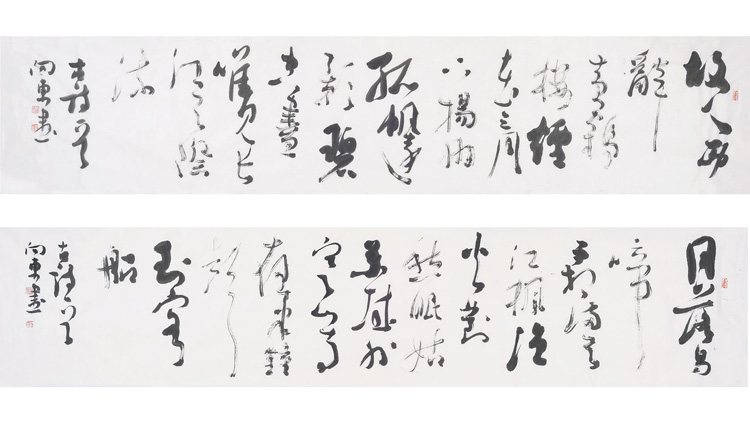 故人西
辭
黄鶴
楼煙
花三月
下揚州
孤帆遠
影碧
空盡
唯見長
江天際
流
古詩一首
向東書
月落烏
啼
霜滿天
江楓漁
火對
愁眠姑
蘇城外
寒山寺
夜半鐘
聲
到客
船
古詩一首
向東書